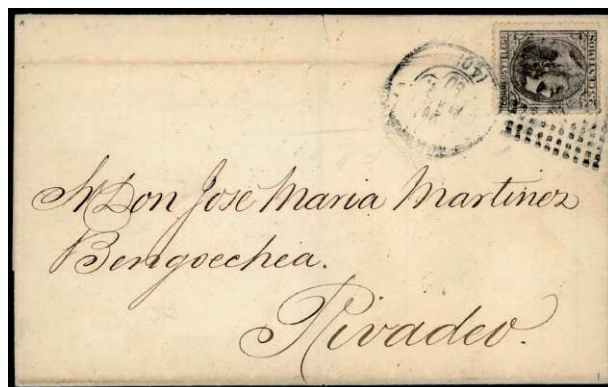 Sr Don José Maria Martinez
Bengoechea.
Rivadeo.